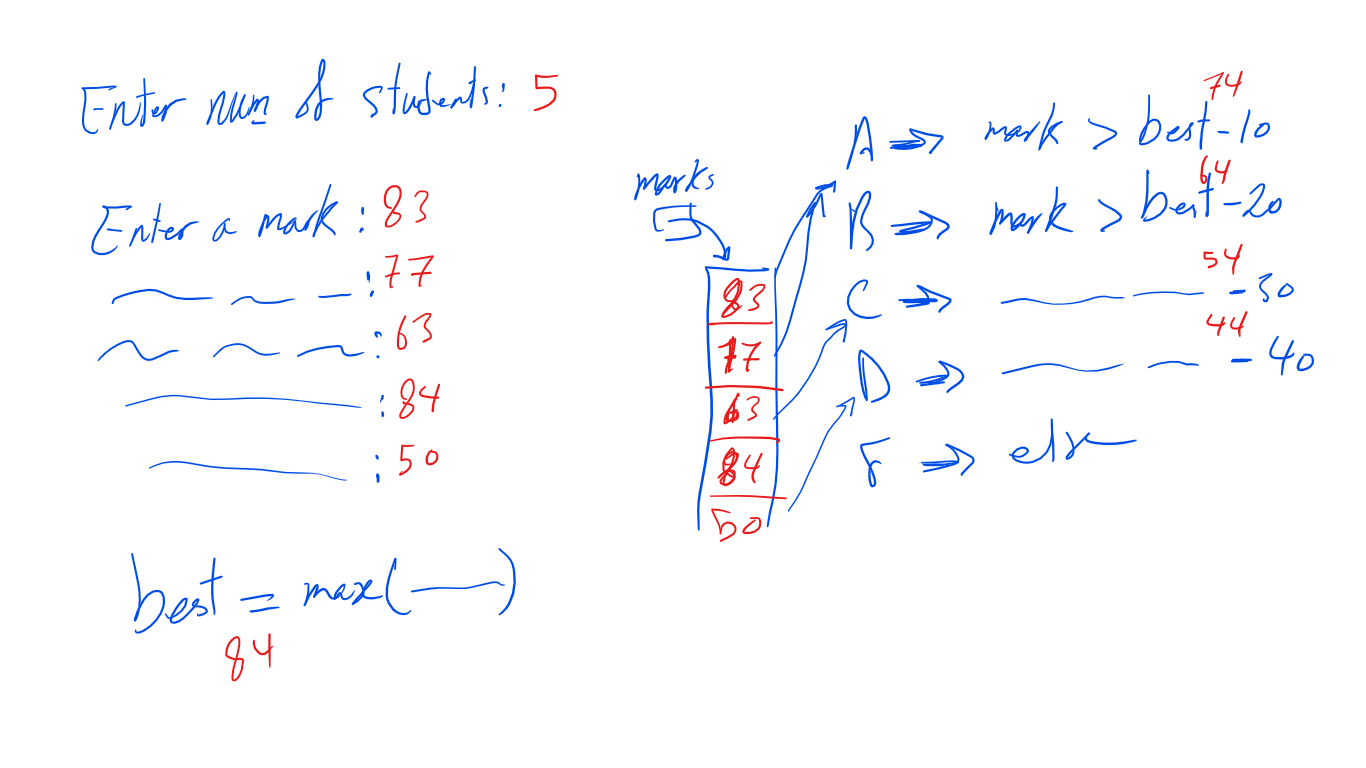 Enter num of students: 5
Enter a mark : 83
: 77
: 63
: 84
: 50
best = max( )
84
marks
83
77
63
84
50
74
A ⇒ mark > best-10
64
B ⇒ mark > best-20
54
C ⇒ -30
44
D ⇒ -40
F ⇒ else